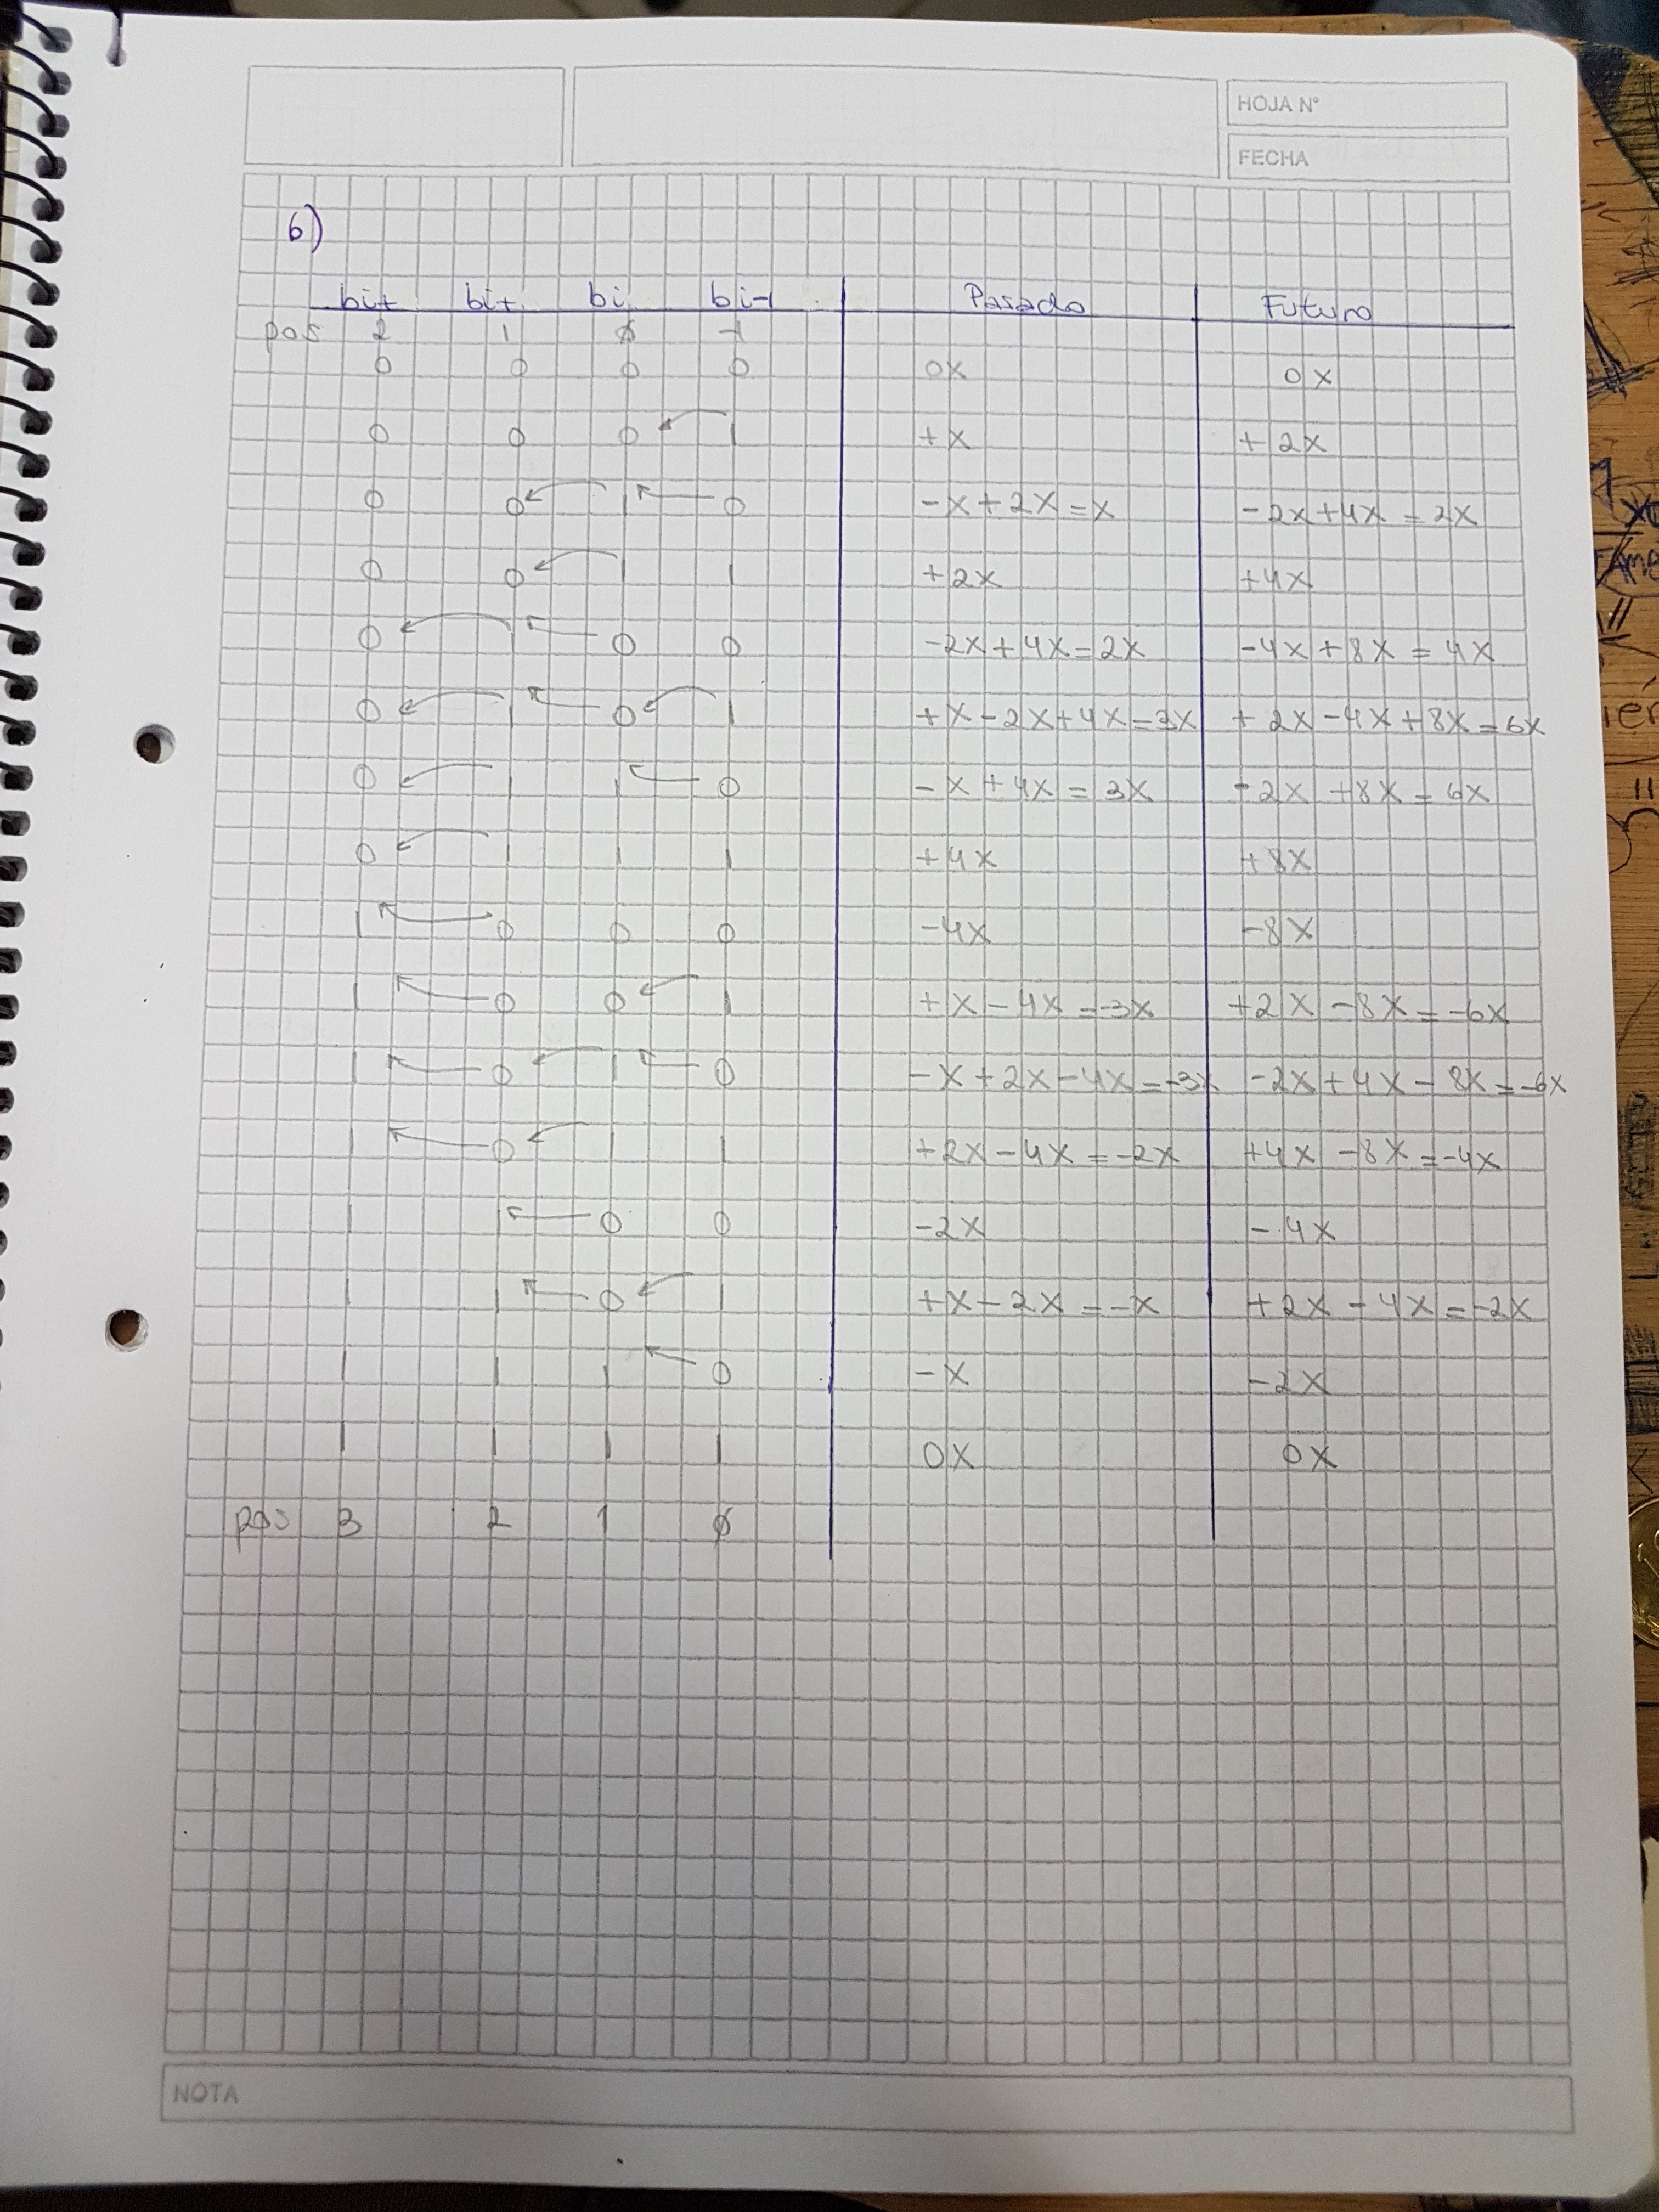 HOJA N°
FECHA
6)
bi+ bi+ bi bi-1 Pasado Futuro
pos 2 1 0 -1
0 0 0 0 0X 0X
0 0 0 1 +X +2X
0 0 1 0 -X+2X=X -2X+4X=2X
0 0 1 1 +2X +4X
0 1 0 0 -2X+4X=2X -4X+8X=4X
0 1 0 1 +X-2X+4X=3X +2X-4X+8X=6X
0 1 1 0 -X+4X=3X -2X+8X=6X
0 1 1 1 +4X +8X
1 0 0 0 -4X -8X
1 0 0 1 +X-4X=-3X +2X-8X=-6X
1 0 1 0 -X+2X-4X=-3X -2X+4X-8X=-6X
1 0 1 1 +2X-4X=-2X +4X-8X=-4X
1 1 0 0 -2X -4X
1 1 0 1 +X-2X=-X +2X-4X=-2X
1 1 1 0 -X -2X
1 1 1 1 0X 0X
pos 3 2 1 0
NOTA